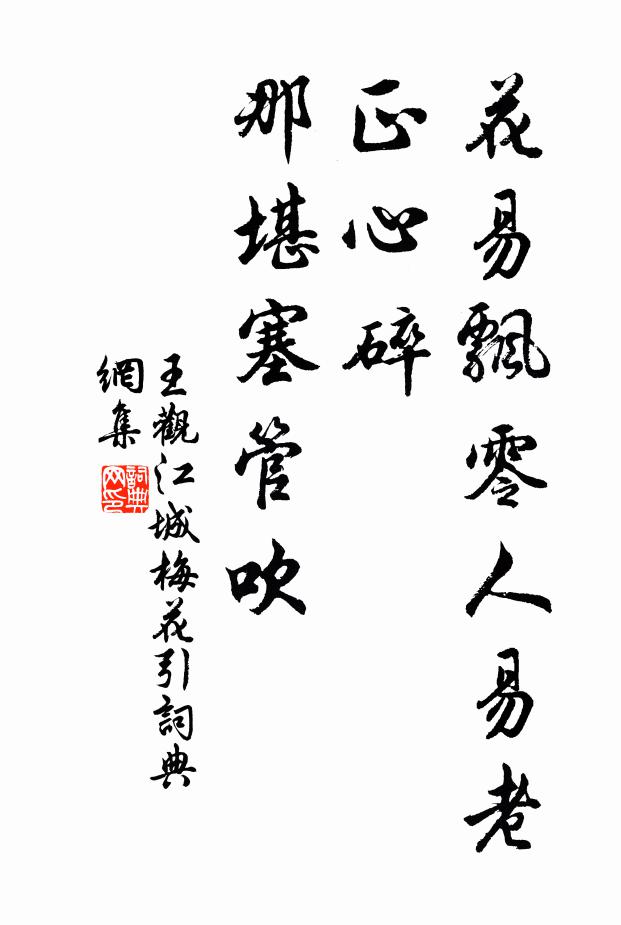 花易飄零人易老
正心碎
那堪塞管吹
王觀江城梅花引詞典
網集
詞典
网印